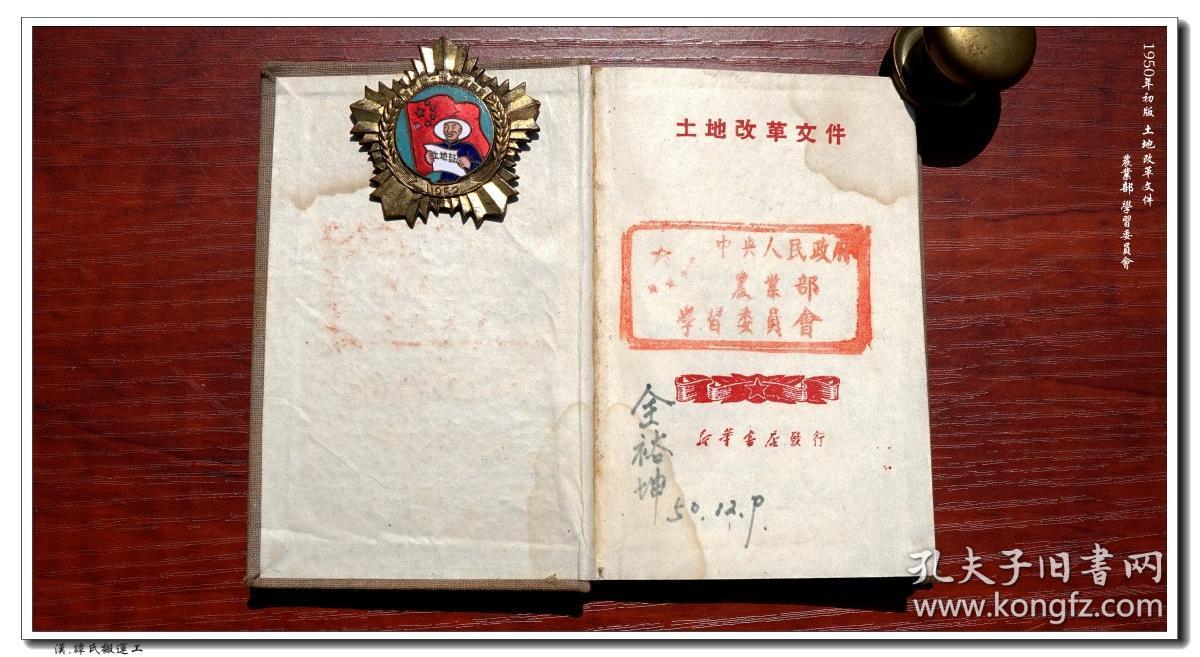 土地改革文件
中央人民政府
農業部
學習委員會
新華書店發行
金裕坤
50.12.9.
土地証
1952
1950年初版 土地改革文件
農業部 學習委員會
孔夫子旧书网
www.kongfz.com
漢.譚氏搬運工